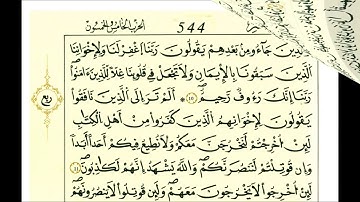 الحزب الخامس والخمسون
544
والذين جاءو من بعدهم يقولون ربنا اغفر لنا ولإخواننا
الذين سبقونا بالإيمان ولا تجعل في قلوبنا غلا للذين ءامنوا
ربنا إنك رءوف رحيم ألم تر إلى الذين نافقوا
يقولون لإخوانهم الذين كفروا من أهل الكتاب
لئن أخرجتم لنخرجن معكم ولا نطيع فيكم أحدا أبدا
وإن قوتلتم لننصرنكم والله يشهد إنهم لكاذبون
لئن أخرجوا لا يخرجون معهم ولئن قوتلوا لا ينصرونهم
ربع